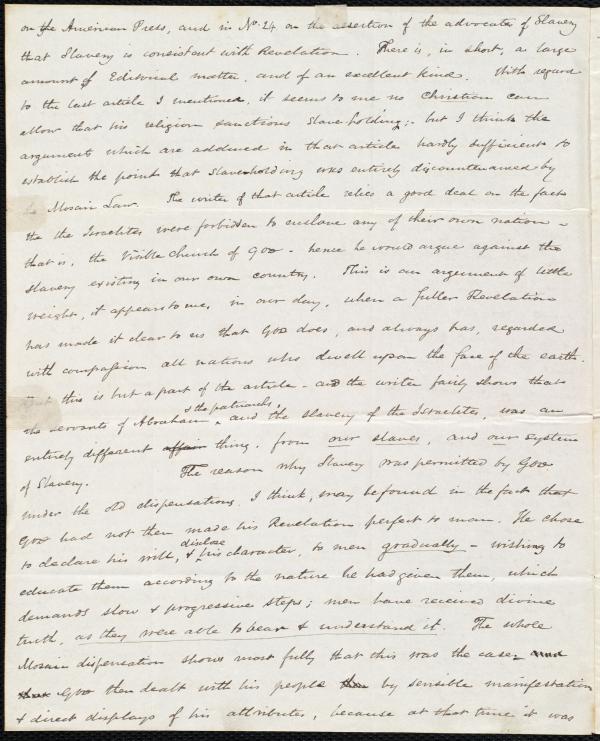 on the American Press, and in No. 24 on the assertion of the advocates of Slavery
that Slavery is consistent with Revelation. There is, in short, a large
amount of Editorial matter, and of an excellent kind. With regard
to the last article I mentioned, it seems to me no Christian can
allow that his religion sanctions Slaveholding; - but I think the
arguments which are adduced in that article hardly sufficient to
establish the point that Slaveholding was entirely discountenanced by
Mosaic Law. The writer of that article relies a good deal on the fact
the the Israelites were forbidden to enslave any of their own nation -
that is, the Visible Church of God - hence he would argue against the
slavery existing in our own country. This is an argument of little
weight, it appears to me, in our day, when a fuller Revelation
has made it clear to us that God does, and always has, regarded
with compassion all nations who dwell upon the face of the earth.
But this is but a part of the article - and the writer fairly shows that
& the patriarchs,
the servants of Abraham, and the slavery of the Israelites, was an
entirely different affair thing, from our slaves, and our system
of Slavery. The reason why Slavery was permitted by God
under the old dispensations, I think, may be found in the fact that
God had not then made his Revelation perfect to man. He chose
disclose
to declare his will, & his character, to men gradually - wishing to
educate them according to the nature he had given them, which
demands slow & progressive steps; men have received divine
truth, as they were able to bear & understand it. The whole
Mosaic dispensation shows most fully that this was the case, and
that God then dealt with his people then by sensible manifestation
& direct displays of his attributes, because at that time it was